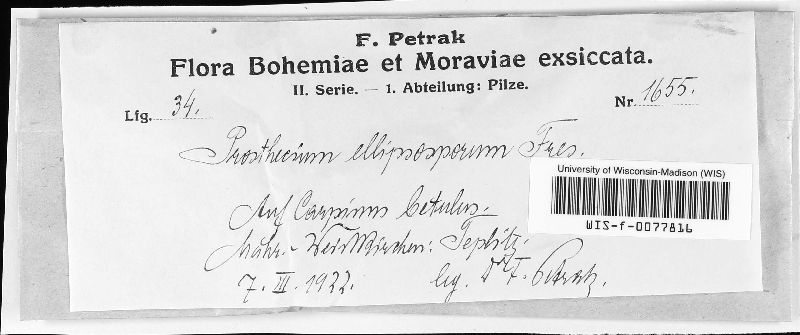 F. Petrak
Flora Bohemiae et Moraviae exsiccata.
II. Serie. — 1. Abteilung: Pilze.
Lfg. 34.
Nr. 1655.
Prosthecium ellipsosporum Fres.
Auf Carpinus betulus.
Mähr.-Weisskirchen: Teplitz.
7. III. 1922. lg. Dr F. Petrak.
University of Wisconsin-Madison (WIS)
WIS-f-0077816